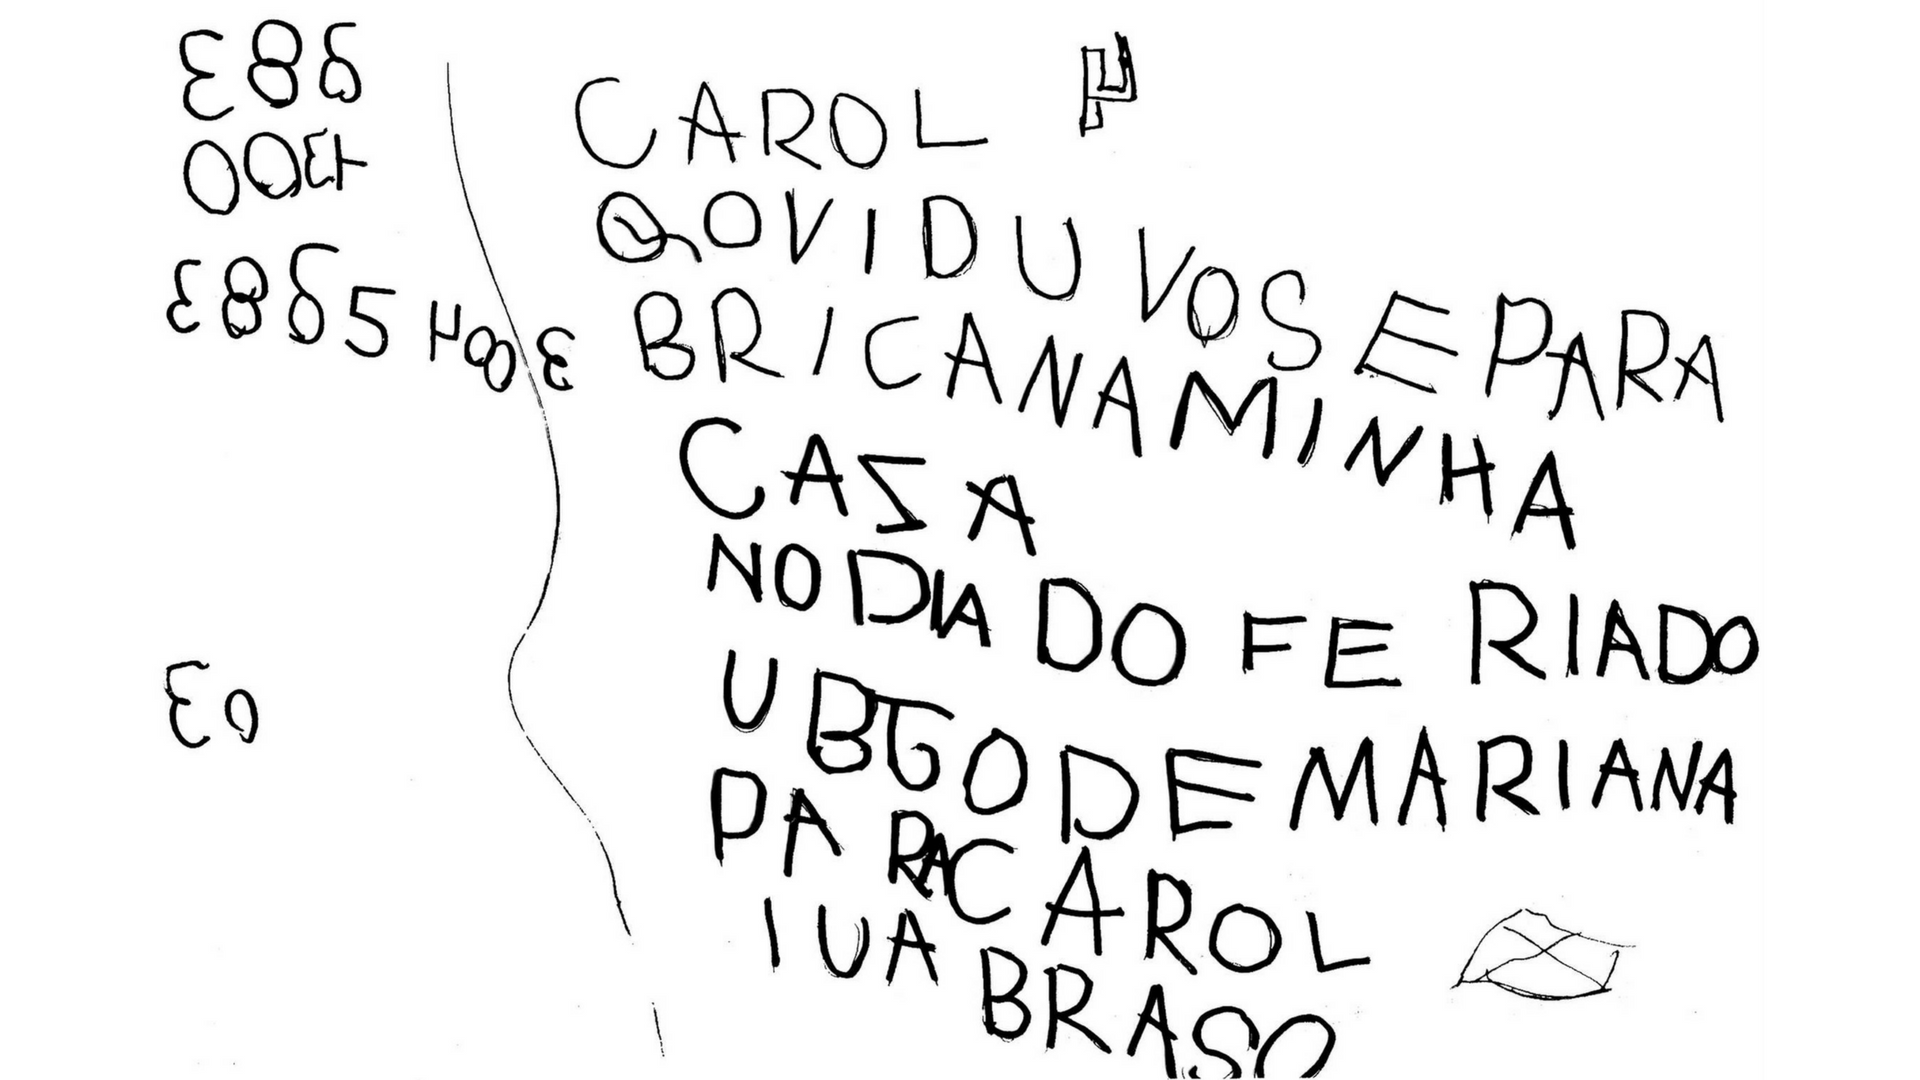 CAROL
QOVIDU VOSE PARA
BRICANAMINHA
CASA
NODIA DO FERIADO
U BGO DE MARIANA
PARA CAROL
I UA BRASO